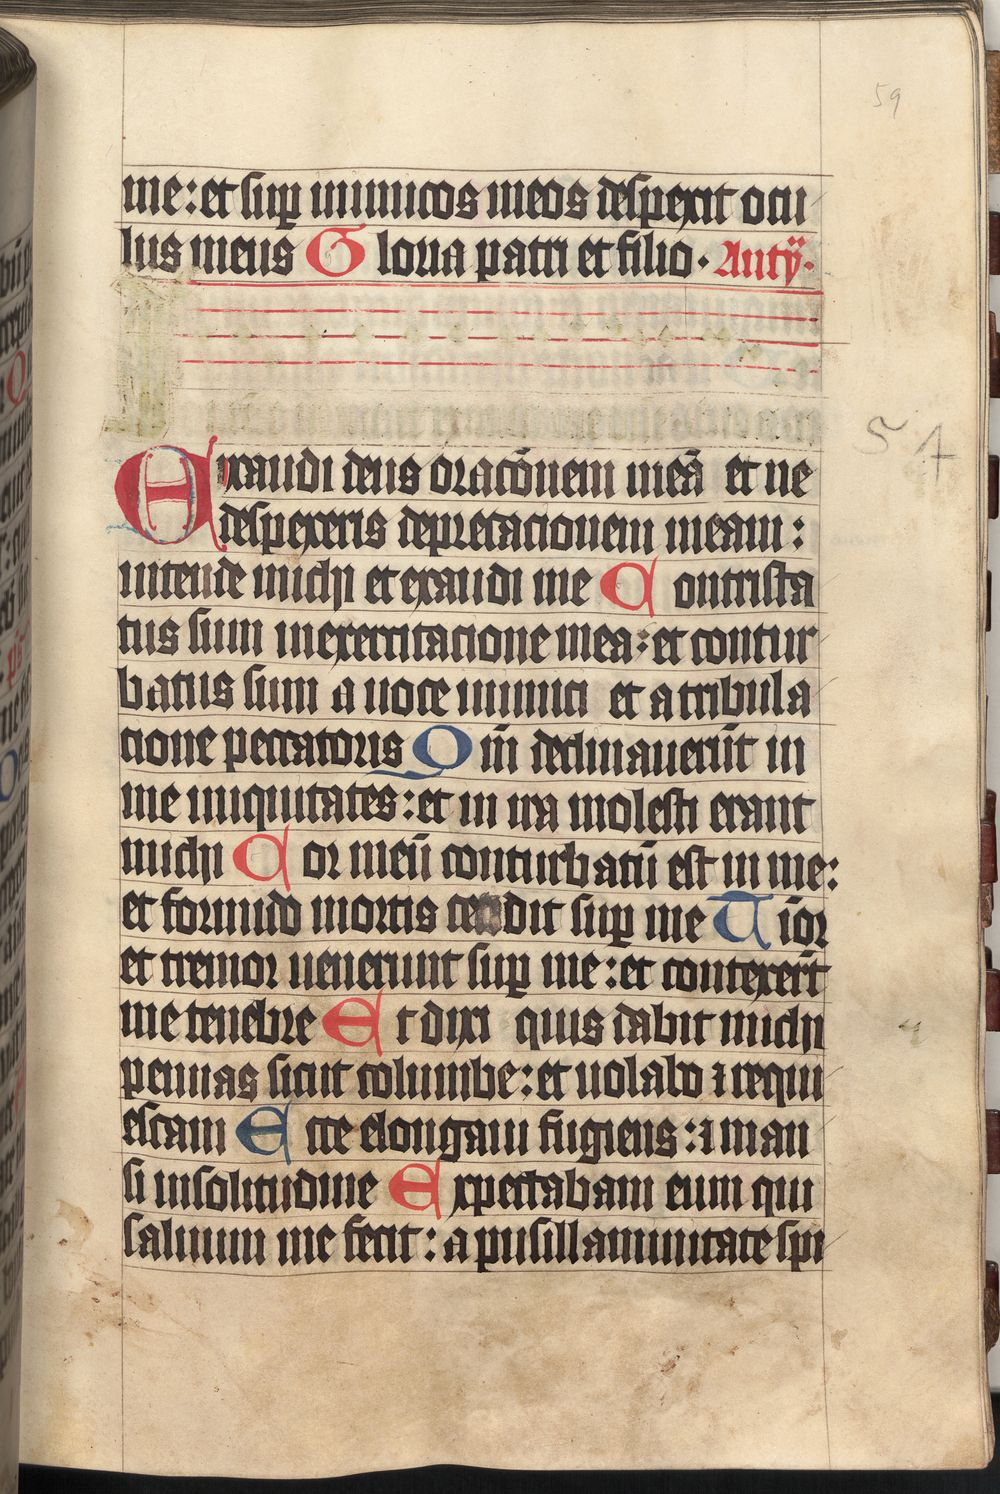 59
me: et sup inimicos meos despexit ocu
lus meus Gloria patri et filio · Antÿ·
54
Exaudi deus oracōnem meā et ne
despexeris deprecacionem meam:
intende michi et exaudi me Contrista
tus sum inexercitacione mea: et contur
batus sum a uoce inimici et a tribula
cione peccatoris Qm̄ declinauerūt in
me iniquitates: et in ira molesti erant
michi Cor meū conturbatū est in me:
et formido mortis cecidit sup me Tīor
et tremor uenerunt sup me: et contexerūt
me tenebre Et dixi quis dabit michi
pennas sicut columbe: et uolabo ⁊ requi
escam Ecce elongaui fugiens: ⁊ man
si insolitudine Expectabam eum qui
saluum me fecit: a pusillanimitate spi